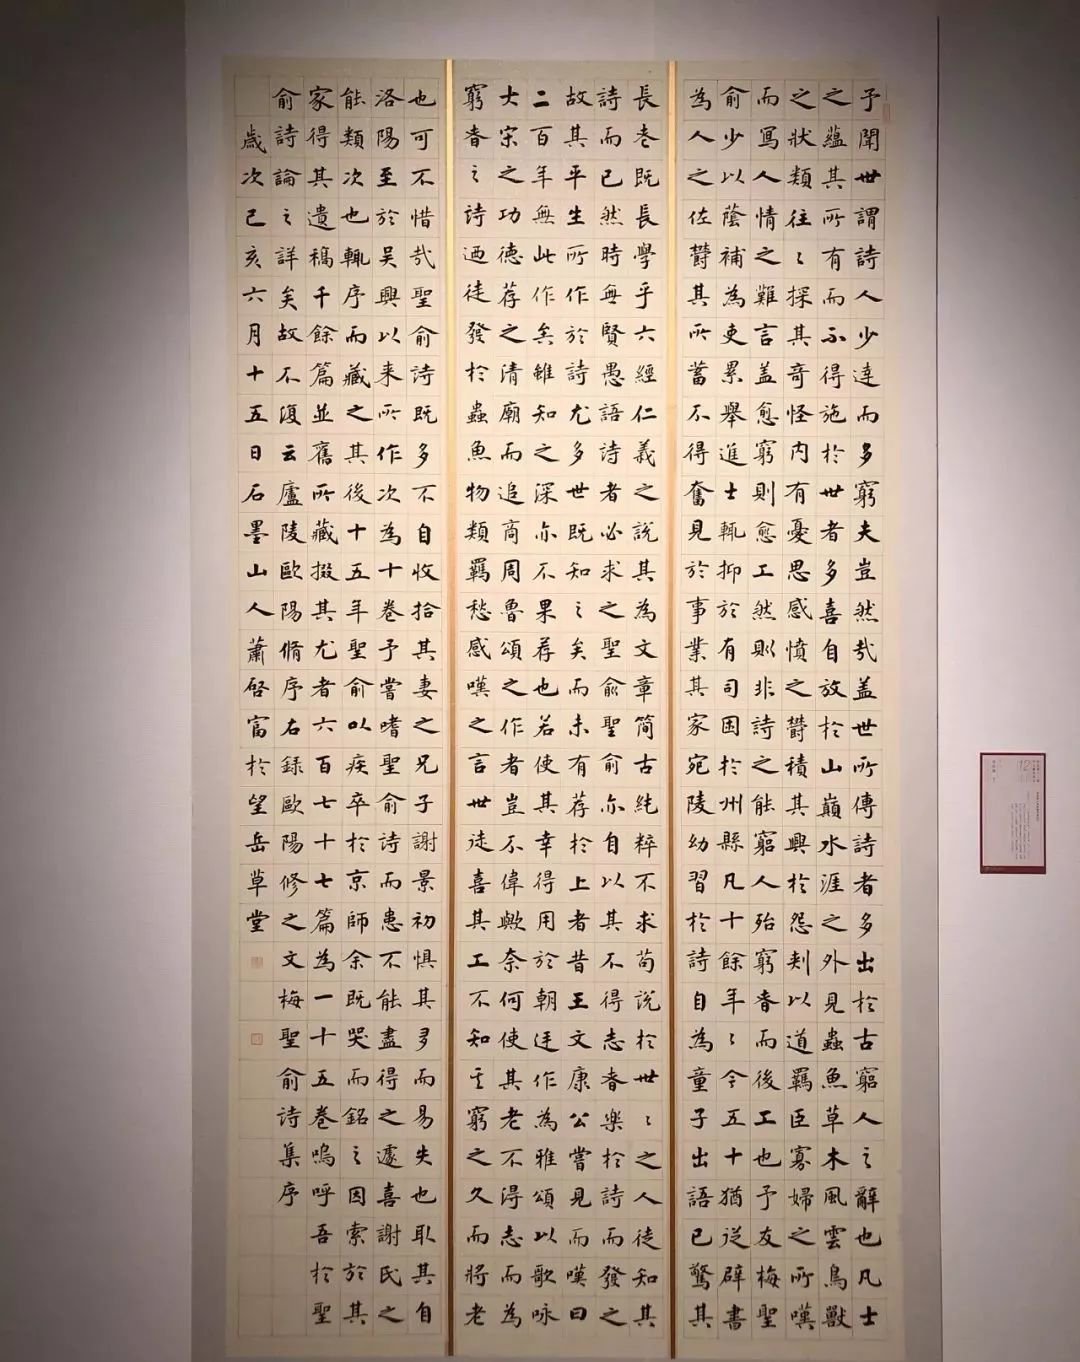 予聞世謂詩人少達而多窮夫豈然哉盖世所傳詩者多出於古窮人之辭也凡士
之蘊其所有而不得施於世者多喜自放於山巔水涯之外見蟲魚草木風雲鳥獸
之狀類往〻探其奇怪内有憂思感憤之鬱積其興於怨刺以道羈臣寡婦之所嘆
而寫人情之難言盖愈窮則愈工然則非詩之能窮人殆窮者而後工也予友梅聖
俞少以蔭補為吏累舉進士輒抑於有司困於州縣凡十餘年〻今五十猶從辟書
為人之佐鬱其所蓄不得奮見於事業其家宛陵幼習於詩自為童子出語已驚其
長老既長學乎六經仁義之說其為文章简古純粹不求苟說於世〻之人徒知其
詩而已然時無賢愚語詩者必求之聖俞聖俞亦自以其不得志者樂於詩而發之
故其平生所作於詩尤多世既知之矣而未有荐於上者昔王文康公嘗見而嘆曰
二百年無此作矣雖知之深亦不果荐也若使其幸得用於朝廷作為雅頌以歌咏
大宋之功德荐之清廟而追商周魯頌之作者豈不偉歟奈何使其老不得志而為
窮者之詩迺徒發於蟲魚物類羈愁感嘆之言世徒喜其工不知其窮之久而將老
也可不惜哉聖俞詩既多不自收拾其妻之兄子謝景初懼其多而易失也取其自
洛陽至於吳興以来所作次為十卷予嘗嗜聖俞詩而患不能盡得之遽喜謝氏之
能類次也輒序而藏之其後十五年聖俞以疾卒於京師余既哭而銘之因索於其
家得其遺稿千餘篇並舊所藏掇其尤者六百七十七篇為一十五卷嗚呼吾於聖
俞詩論之詳矣故不復云廬陵歐陽脩序右録歐陽修之文梅聖俞詩集序
歲次己亥六月十五日石墨山人蕭啓富於望岳草堂
12